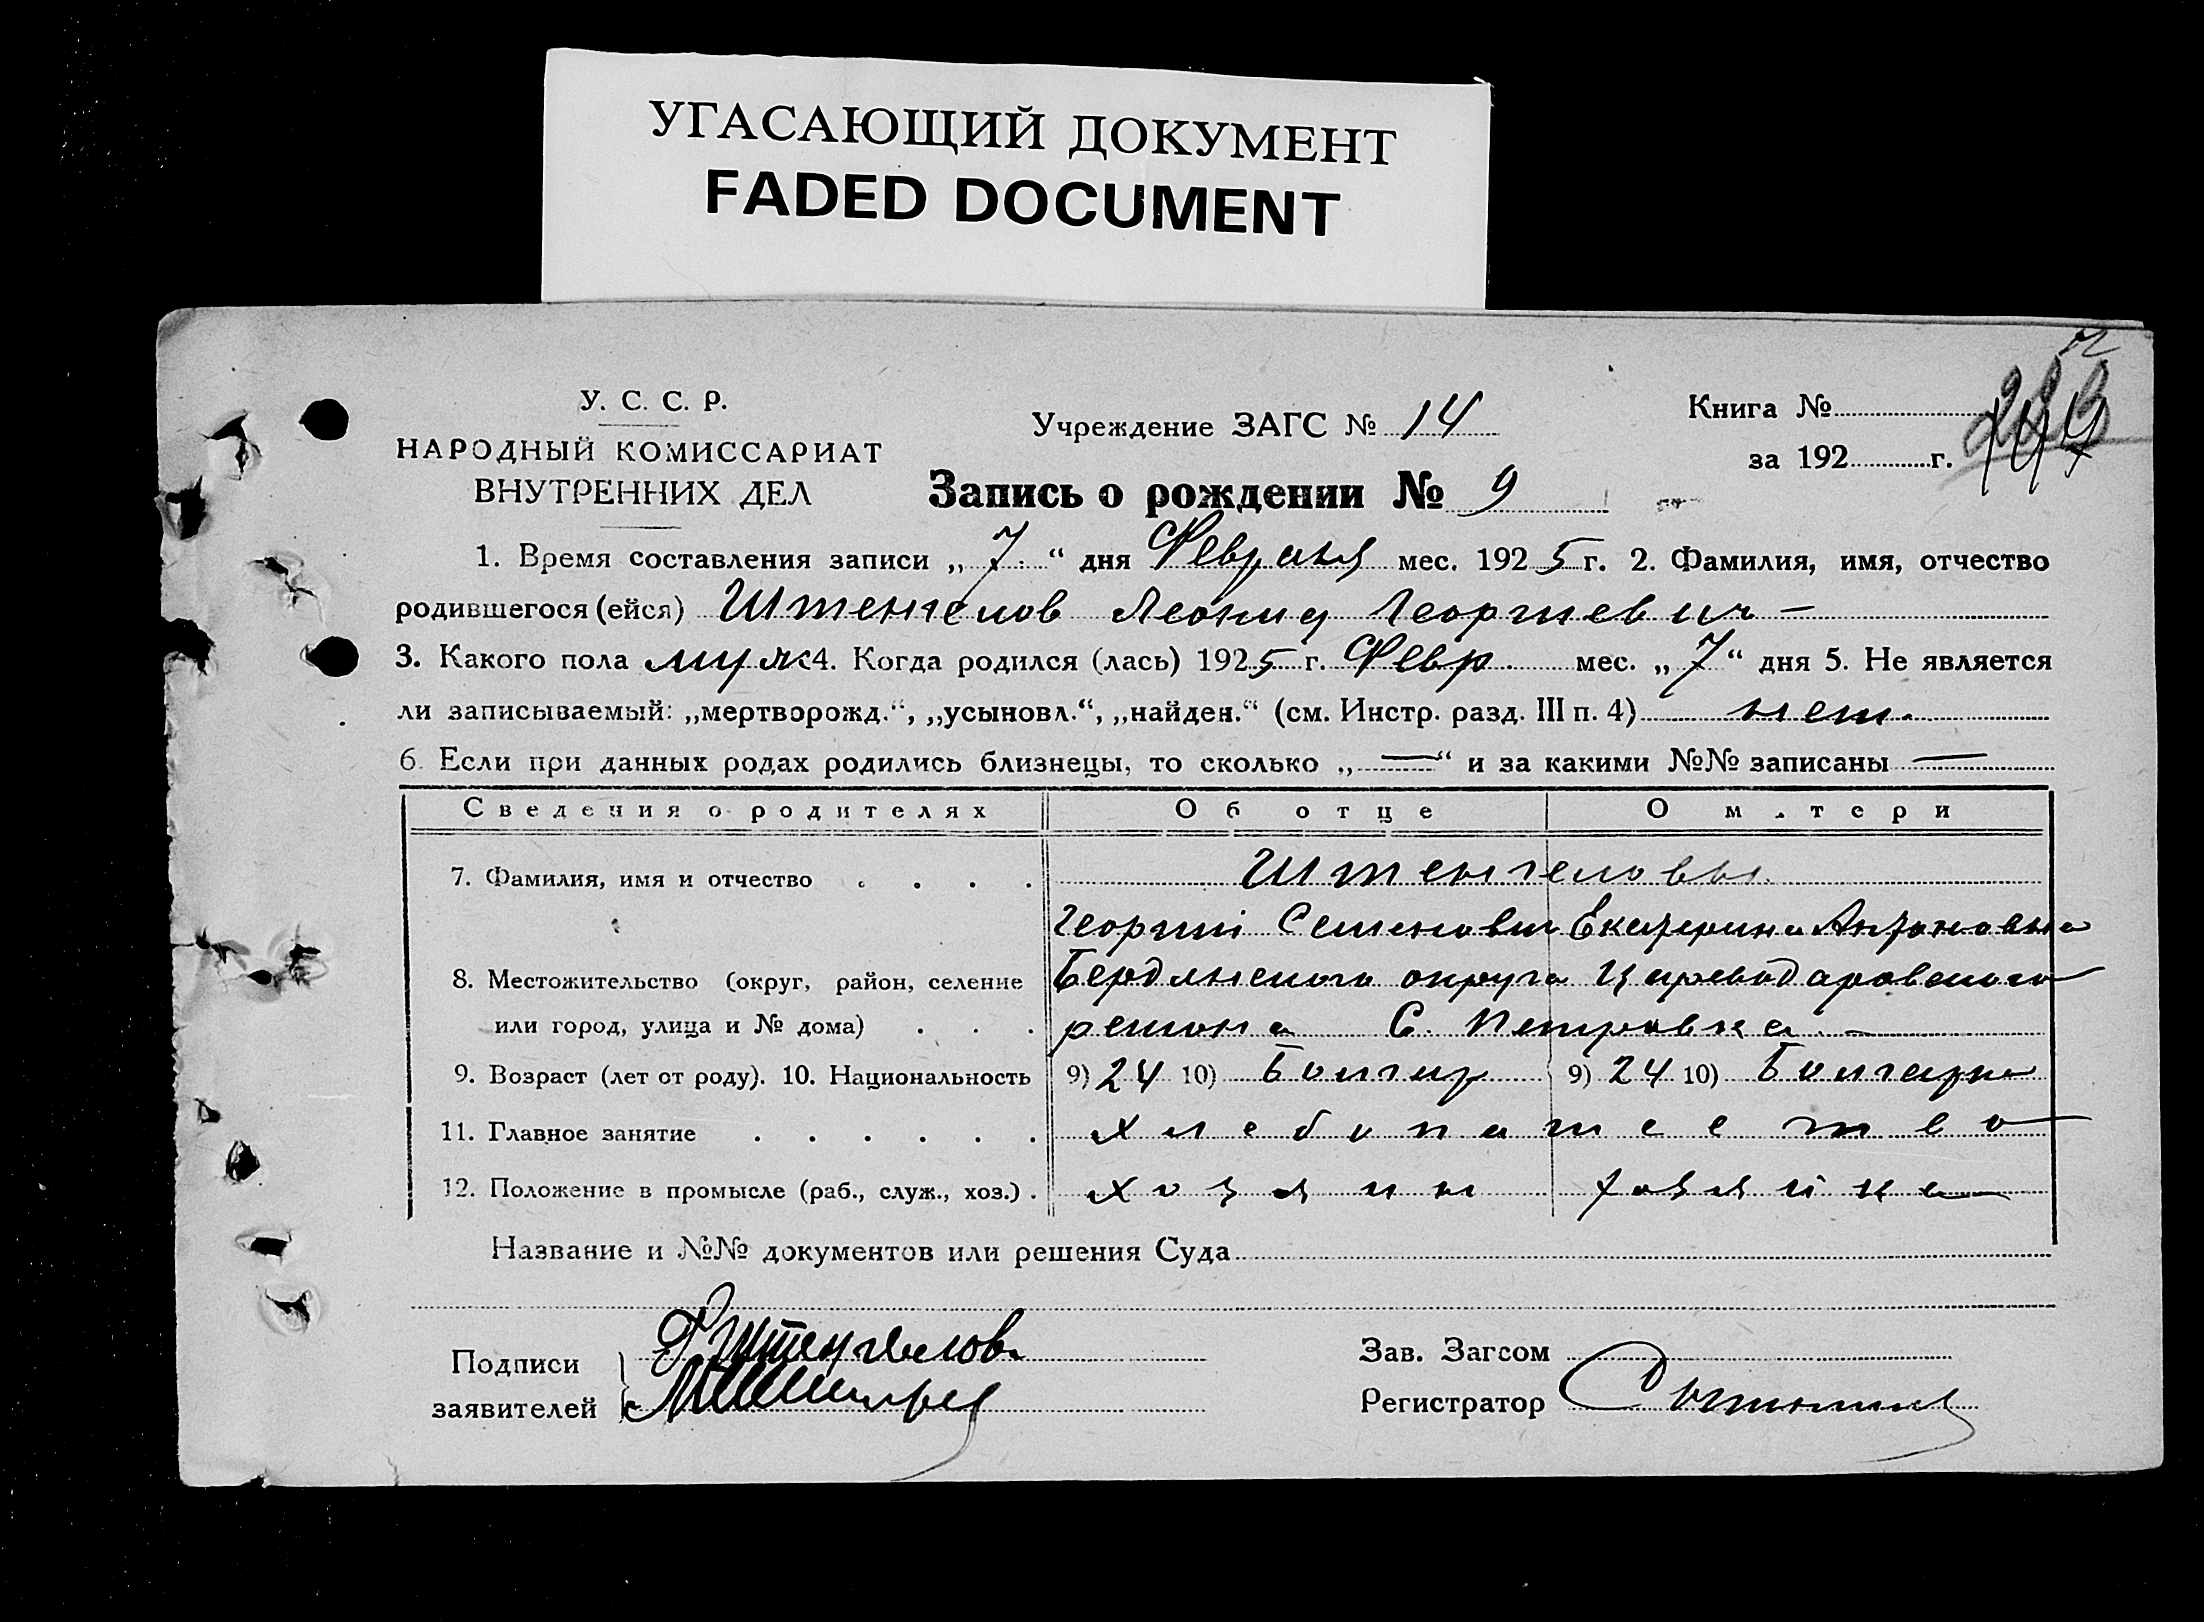 УГАСАЮЩИЙ ДОКУМЕНТ
FADED DOCUMENT
У. С. С. Р.
НАРОДНЫЙ КОМИССАРИАТ
ВНУТРЕННИХ ДЕЛ
Учреждение ЗАГС № 14
Книга №
за 192 г.
Запись о рождении № 9
1. Время составления записи „ 7 “ дня Февраля мес. 1925 г. 2. Фамилия, имя, отчество
родившегося (ейся) Штенгелов Леонид Георгиевич —
3. Какого пола муж 4. Когда родился (лась) 1925 г. Февр. мес. „ 7 “ дня 5. Не является
ли записываемый: „мертворожд.“, „усыновл.“, „найден.“ (см. Инстр. разд. III п. 4) нет.
6. Если при данных родах родились близнецы, то сколько „ — “ и за какими №№ записаны —
Сведения о родителях Об отце О м.тери
7. Фамилия, имя и отчество . . . . Штенгеловы.
Георгий Семенович Екатерина Антоновна
8. Местожительство (округ, район, селение Бердянского округа Цареводаровского
или город, улица и № дома) . . . района С. Петровка. —
9. Возраст (лет от роду). 10. Национальность 9) 24 10) Болгар 9) 24 10) Болгарка
11. Главное занятие . . . . . . хлебопашество
12. Положение в промысле (раб., служ., хоз.) . хозяин хозяйка
Название и №№ документов или решения Суда
Подписи Штенгелов
заявителей
Зав. Загсом
Регистратор